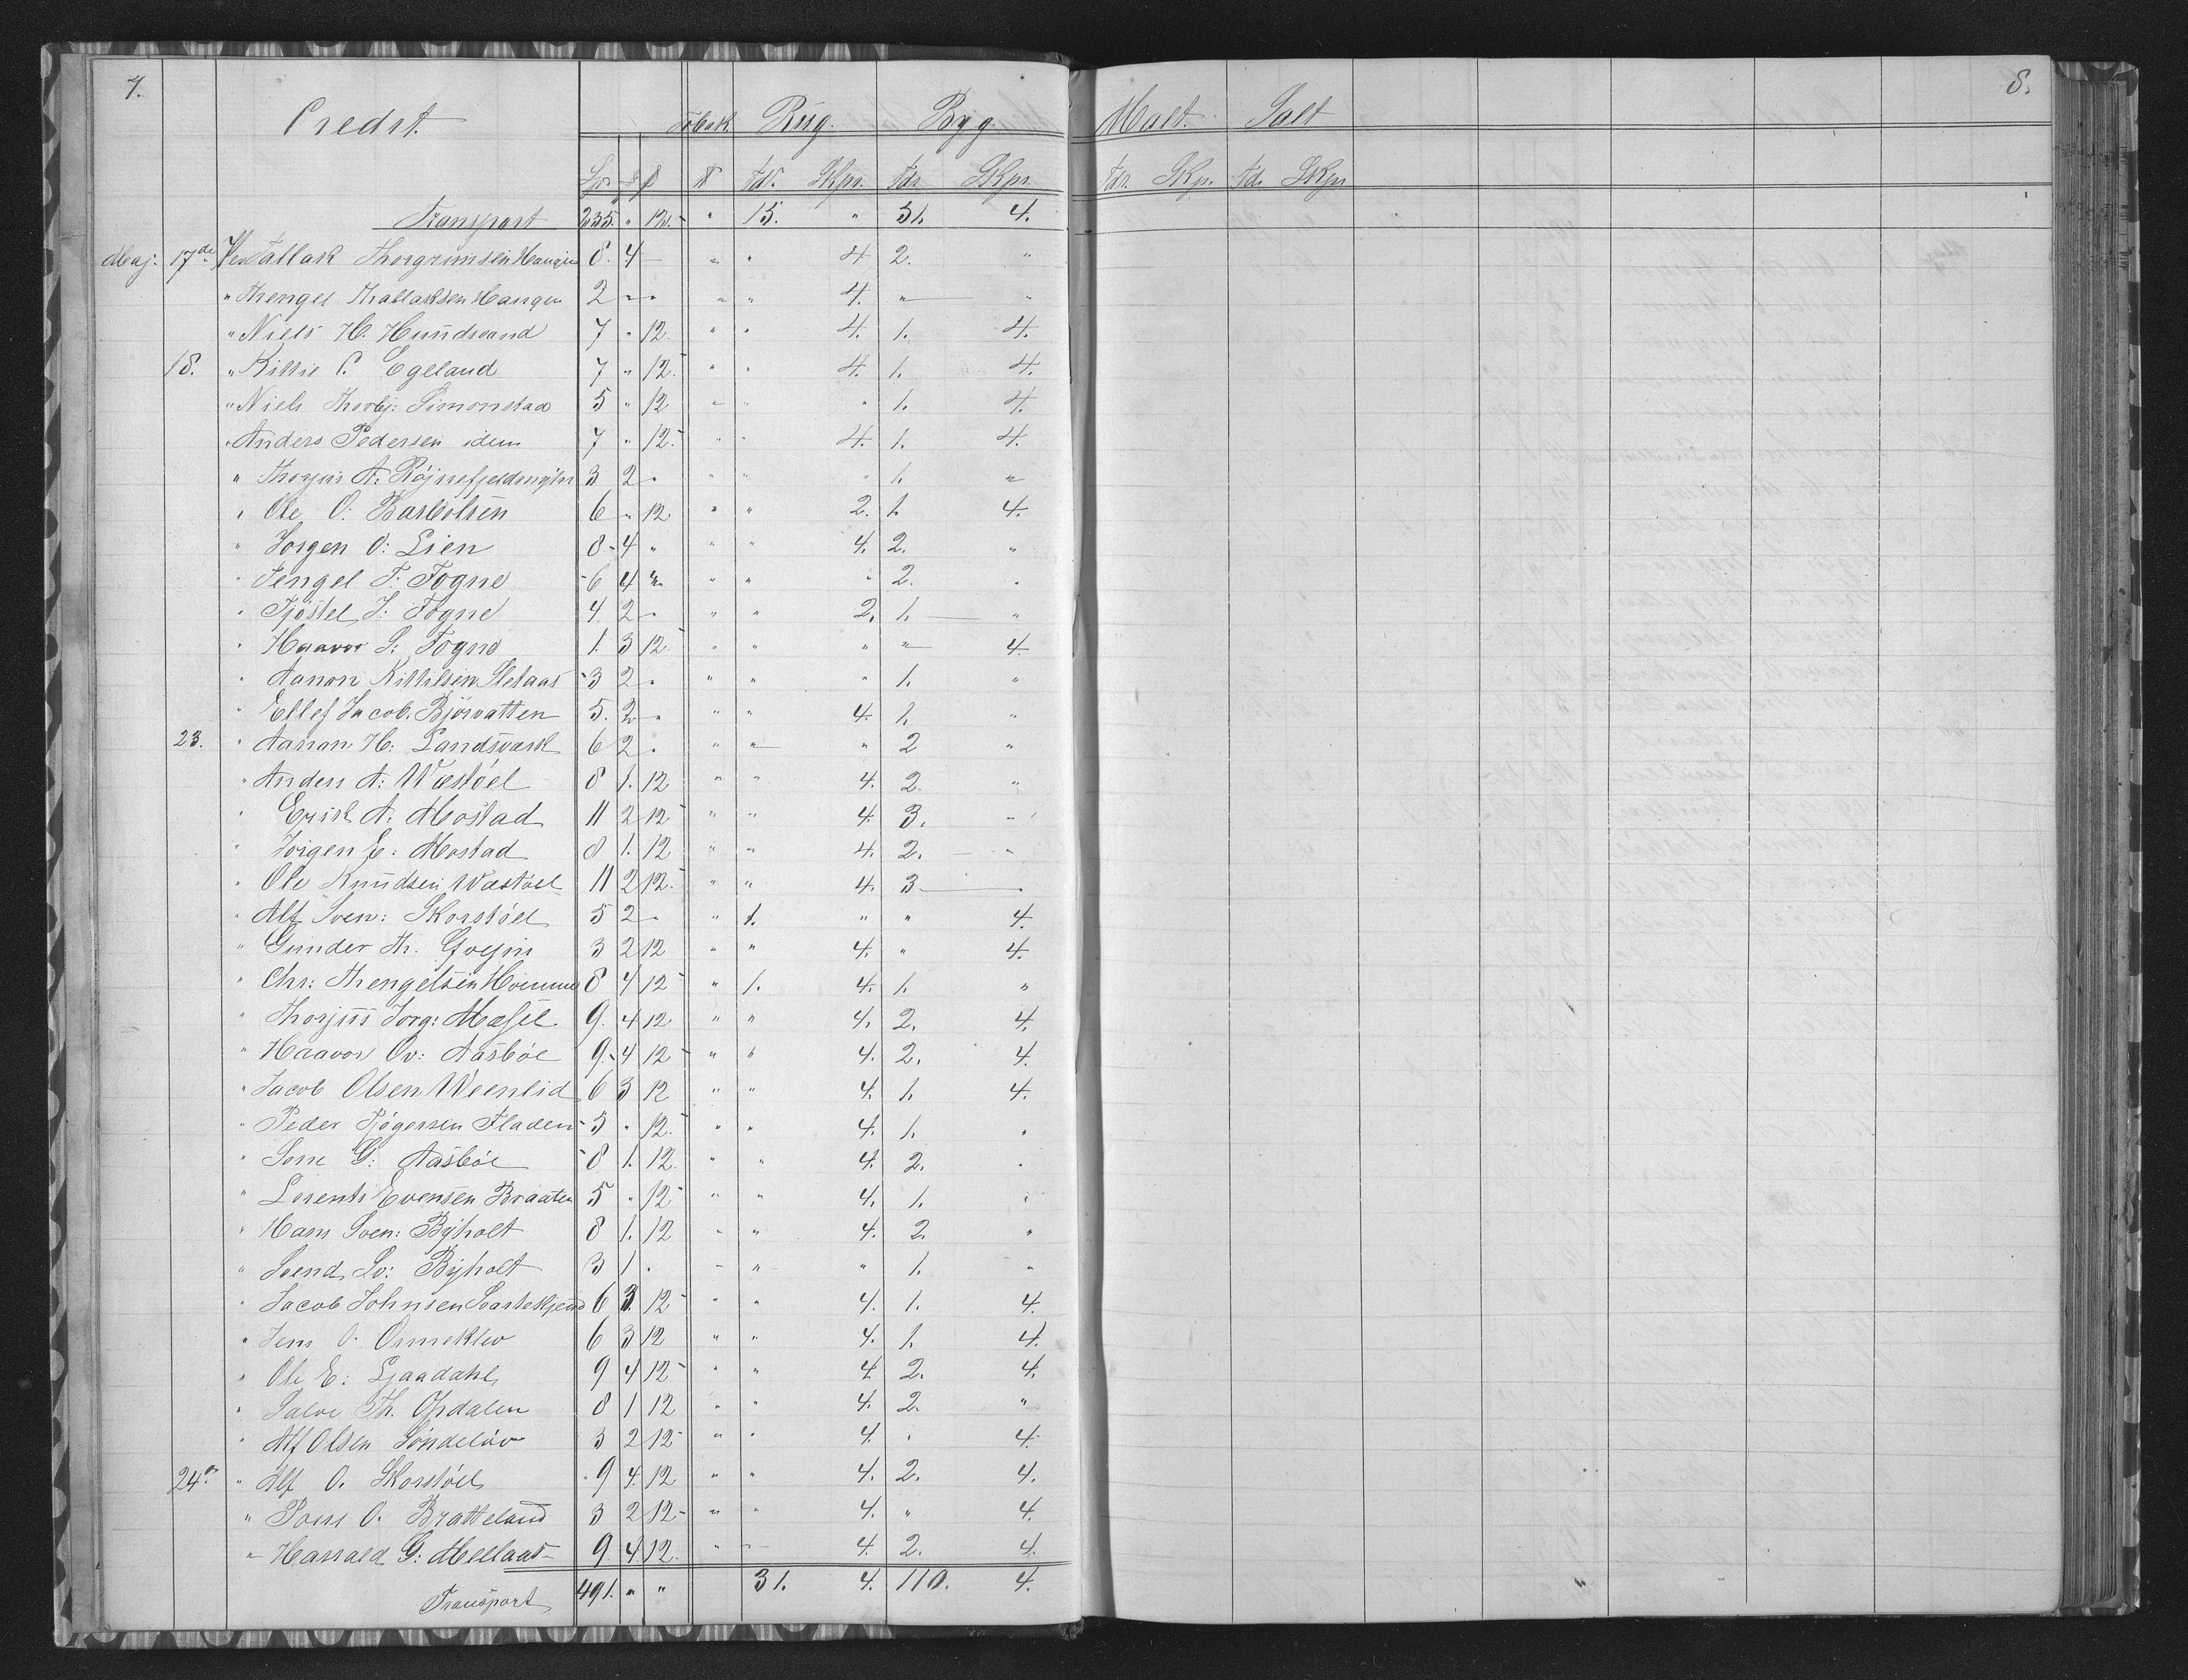 7.
Credit.
Tobak. Rug. Byg.
Spd. ₰ ß ℔ Tdr. Skpr. Tdr Skpr.
Transport 235. " 12. - " 15. " 51. 4.
Maj. 17de Ved Tallak Thorgrimsen Haugen 8. 4 — " " 4 2. "
" Threngel Thallaksen Haugen 2 - " " " 4. " "
" Niels H. Hundsvand 7 " 12. " " 4. 1. 4.
18. " Kittil C. Egeland 7 " 12. " " 4. 1. 4.
" Niels Thorbj: Simonstad 5 " 12 " " " 1. 4.
" Anders Pedersen idem 7 " 12. " " 4. 1. 4.
" Thorjus A. 3 2 " " " " 1. "
" Ole O: Barbolsen 6 " 12 " " 2. 1. 4.
" Jorgen O: Lien 8 - 4 " " " 4. 2. "
" Tengel T: Fogne 6 4 " " " " 2. "
" Tjøstel J: Fogne 4. 2 " " " 2. 1. "
" Haavor S: Fogne 1. 3 12. " " " " 4.
" Aanon Kittilsen Sletaas 3 2 " " " " 1. "
" Ellef Jacob. Bjørvatten 5. 2 " " " 4. 1. "
23. " Aanon H: Landsvark 6 2 " " " " 2 "
" Anders A: Wæstøel 8 1. 12 " " 4. 2. "
" Erik A. Mostad 11 2 12 " " 4. 3. "
" Jorgen E: Mostad 8 1. 12 " " 4. 2. "
" Ole Knudsen Wæstøel 11 2 12. " " 4. 3 "
" Alf Sven: Skorstøel 5 2 " " 1. " " 4.
" Gunder Th. 3 2 12 " " 4. " 4.
" Chr: Thengelsen Hvimme 8 4 12 " 1. 4. 1. "
" Thorjus Jorg: Messel 9. 4 12 " " 4. 2. 4.
" Haavor Ov: Aasbøe 9. 4 12 " " 4. 2. 4.
" Jacob Olsen Weenlid 6 3 12 " " 4. 1. 4.
" Peder Tjøgersen Fladen 5 " 12. " " 4. 1. "
" G: Aasbøe 8 1. 12. " " 4. 2. "
" Lorents Evensen Braaten 5 " 12 " " 4. 1. "
" Hans Sven: Byholt 8 1. 12 " " 4. 2. "
" Svend Sv: Byholt 3 1 " " " " 1. "
" Jacob Johnsen Svartekjend 6 3 12 " " 4. 1. 4.
" Jens O. Ormeklev 6 3 12 " " 4. 1. 4.
" Ole E: Ljaadahl 9 4 12 " " 4 2. 4.
" Salve Th. Opdalen 8 1 12 " " 4. 2. "
" Alf Olsen Søndeløv 3 2 12 " " 4. " 4.
24de " Alf O. Skorstøel 9 4. 12 " " 4. 2. 4.
" O. Bratteland 3 2 12 - " " 4. " 4.
" Harrald G: Mellaas 9. 4 12. " " 4. 2. 4.
Transport 491. " " 31. 4. 110. 4.
8.
Malt. Salt
Tdr. Skp. Td. Skpr